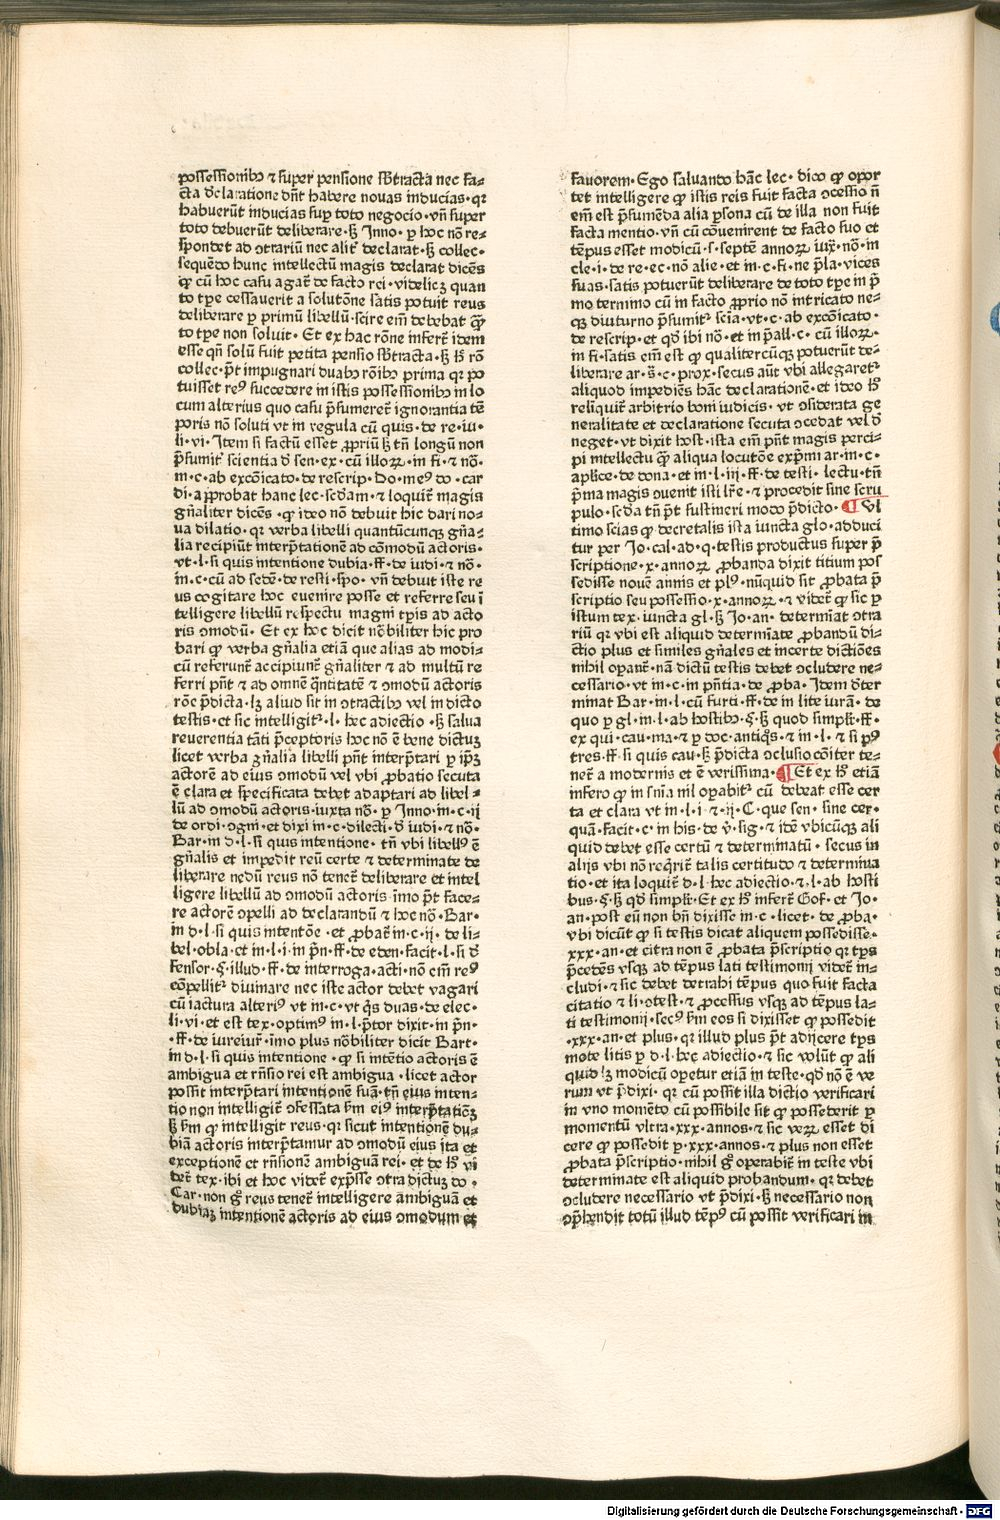 possessionibꝰ ⁊ super pensione sb̄tracta nec fa⸗
cta d̓claratione dn̄t habere nouas inducias· qꝛ
habuerūt inducias suꝑ toto negocio· vn̄ super
toto debuerūt deliberare· ꝫ Inno· ꝑ hoc nō re⸗
spondet ad ↄtrariū nec alit̓ declarat· ꝫ collec·
sequēdo hunc intellectū magis declarat dicēs
ꝙ cū hoc casu agat̄ de facto rei· videlicꝫ quan
to tꝑe cessauerit a solutōne satis potuit reus
deliberare ꝑ primū libellū· scire em̄ debebat ꝙ̄
to tꝑe non soluit· Et ex hac rōne infert̄ idem
esse qn̄ solū fuit petita pensio sb̄tracta· ꝫ hꝰ rō
collec· pt̄ impugnari duabꝰ rōibꝰ prima qꝛ po
tuisset reꝰ succedere in istis possessionibꝰ in lo
cum alterius quo casu p̄sumeret̄ ignorantia tē
poris nō soluti vt in regula cū quis· de re· iu·
li· vi· Item si factū esset ꝓpriū ꝫ tn̄ longū non
p̄sumit᷑ scientia d̓ sen· ex· cū illoꝝ· in fi· ⁊ nō·
in· c· ab excōicato· de rescrip· do· meꝰ do· car
di· approbat hanc lec· scd̄am· ⁊ loquit̄ magis
gn̄aliter dicēs· ꝙ ideo nō debuit hic dari no⸗
ua dilatio· qꝛ verba libelli quantūcunqꝫ gn̄a⸗
lia recipiūt interp̄tationē ad cōmodū actoris·
vt· l· si quis intentione dubia· ff· de iudi· ⁊ nō·
in· c· cū ad sedē· de resti· spo· vn̄ debuit iste re
us cogitare hoc euenire posse et referre seu ī
telligere libellū respectu magni tꝑis ad acto
ris ↄmodū· Et ex hoc dicit nōbiliter hic pro
bari ꝙ verba gn̄alia etiā que alias ad modi⸗
cū referunt̄ accipiunt̄ gn̄aliter ⁊ ad multū re
ferri pn̄t ⁊ ad omnē q̄ntitatē ⁊ ↄmodū actoris
rōe p̄dicta· lꝫ aliud sit in ↄtractibꝰ vel in dicto
testis· et sic intelligit᷑· l· hec adiectio· ꝫ salua
reuerentia tāti p̄ceptoris hoc nō ē bene dictuꝫ
licet verba gn̄alia libelli pn̄t interp̄tari ꝑ ip̄ꝫ
actorē ad eius ↄmodū vel vbi ꝓbatio secuta
ē clara et specificata debet adaptari ad libel⸗
lū ad ↄmodū actoris· iuxta nō· ꝑ Inno· in· c· ij
de ordi· ↄgni· et dixi in· c· dilecti· d̓ iudi· ⁊ nō·
Bar· in d· l· si quis intentione· tn̄ vbi libellꝰ ē
gn̄alis et impedit reū certe ⁊ determinate de
liberare nedū reus nō tenet̄ deliberare et intel
ligere libellū ad ↄmodū actoris· imo pt̄ face⸗
re actorē ↄpelli ad declarandū ⁊ hoc nō· Bar·
in d· l· si quis intentōe· et ꝓbat̄ in· c· ij· de li⸗
bel· obla· et in· l· i· in pn̄· ff· de eden· facit· l· si d̓
fensor· §· illud· ff· de interroga· acti· nō em̄ reꝰ
cōpellit᷑ diuinare nec iste actor debet vagari
cū iactura alteriꝰ vt in· c· vt q̓s duas· de elec·
li· vi· et est tex· optimꝰ in· l· p̄tor dixit· in pn̄·
·ff· de iureiur̄· imo plus nōbiliter dicit Bart·
in d· l· si quis intentione· ꝙ si intētio actoris ē
ambigua et rn̄sio rei est ambigua· licet actor
possit interp̄tari intentionē suā· tn̄ eius inten⸗
tio non intelligit̄ ↄfessata ẜm eiꝰ interp̄tationē
ꝫ ẜm ꝙ intelligit reus· qꝛ sicut intentionē du⸗
biā actoris interp̄tamur ad ↄmodū eius ita et
exceptionē et rn̄sionē ambiguā rei· et de hꝰ vi
det̄ tex· ibi et hoc videt̄ exp̄sse ↄtra dictuꝫ do·
Car· non gͦ reus tenet̄ intelligere ambiguā et
dubiaꝫ intentionē actoris ad eius ↄmodum et
fauorem· Ego saluando hāc lec· dico ꝙ opor
tet intelligere ꝙ istis reis fuit facta ↄcessio n̄
em̄ est p̄sumēda alia ꝑsona cū de illa non fuit
facta mentio· vn̄ cū cōuenirent de facto suo et
tēpus esset modicū· s· septē annoꝝ iux̄· nō· in
cle· i· de re· ec· nō alie· et in· c· fi· ne p̄la· vices
suas· satis potuerūt deliberare de toto tꝑe in p̄
mo termino cū in facto ꝓprio nō intricato ne⸗
qꝫ diuturno p̄sumit᷑ scīa· vt· c· ab excōicato·
de rescrip· et qd̓ ibi nō· et in p̄all· c· cū illoꝝ·
in fi· satis em̄ est ꝙ qualitercūqꝫ potuerūt de⸗
liberare ar· s̄· c· prox· secus aūt vbi allegaret᷑
aliquod impediēs hāc declarationē· et ideo hꝰ
reliquit̄ arbitrio boni iudicis· vt ↄsiderata ge
neralitate et declaratione secuta ↄcedat vel d̓
neget· vt dixit host· ista em̄ pn̄t magis perci⸗
pi intellectu ꝙ̄ aliqua locutōe exp̄mi ar· in· c·
aplice· de dona· et in· l· iii· ff· de testi· lectu· tn̄
p̄ma magis ↄuenit isti lr̄e· ⁊ procedit sine scru
pulo· scd̄a tn̄ pt̄ sustineri modo p̄dicto· ¶ Vl
timo scias ꝙ decretalis ista iuncta glo· adduci
tur per Jo· cal· ad· q· testis productus super p̄
scriptione· x· annoꝝ ꝓbanda dixit titium pos
sedisse nouē annis et plꝰ· nūquid sit ꝓbata p̄
scriptio seu possessio· x· annoꝝ· ⁊ videt̄ ꝙ sic ꝑ
istum tex· iuncta gl· ꝫ Jo· an· determīat ↄtra
riū qꝛ vbi est aliquid determīate ꝓbandū di⸗
ctio plus et similes gn̄ales et incerte dictiōes
nihil opant̄· nā dictū testis debet ↄcludere ne⸗
cessario· vt in· c· in pn̄tia· de ꝓba· Idem d̓ter
minat Bar· in· l· cū furti· ff· de in lite iurā· de
quo ꝑ gl· in· l· ab hostibꝰ· §· ꝫ quod simpłr· ff·
ex qui· cau· ma· ⁊ ꝑ doc· antiq̓s· ⁊ in· l· ⁊ si pꝰ
tres· ff· si quis cau· ꝫ p̄dicta ↄclusio cōiter te⸗
net̄ a modernis et ē verissima· ¶ Et ex hꝰ etiā
infero ꝙ in sn̄ia nil oꝑabit᷑ cū debeat esse cer
ta et clara vt in· l· i· ⁊· ij· C· que sen· sine cer·
quā· facit· c· in his· de v̓· sig· ⁊ idē vbicūqꝫ ali
quid debet esse certū ⁊ determinatū· secus in
alijs vbi nō req̓rit̄ talis certitudo ⁊ determina
tio· et ita loquit̄ d· l· hec adiectio· ⁊· l· ab hosti
bus· §· ꝫ qd̓ simpłr· Et ex hꝰ infert̄ Gof· et Jo·
an· post eū non bn̄ dixisse in· c· licet· de ꝓba·
vbi dicūt ꝙ si testis dicat aliquem possedisse·
xxx· an· et citra non ē ꝓbata p̄scriptio qꝛ tꝑs
p̄cedēs vsqꝫ ad tēpus lati testimonij videt̄ in⸗
cludi· ⁊ sic debet detrahi tēpus quo fuit facta
citatio ⁊ li· ↄtest· ⁊ ꝓcessus vsqꝫ ad tēpus la⸗
ti testimonij· secꝰ ẜm eos si dixisset ꝙ possedit
·xxx· an· et plus· qꝛ illud plus pt̄ adijcere tꝑs
mote litis ꝑ d· l· hec adiectio· ⁊ sic volūt ꝙ ali
quid lꝫ modicū oꝑetur etiā in teste· qd̓ nō ē ve
rum vt p̄dixi· qꝛ cū possit illa dictio verificari
in vno momēto cū possibile sit ꝙ possederit ꝑ
momentū vltra· xxx· annos· ⁊ sic veꝝ esset di
cere ꝙ possedit ꝑ· xxx· annos· ⁊ plus non esset
ꝓbata p̄scriptio· nihil gͦ operabit̄ in teste vbi
determinate est aliquid probandum· qꝛ debet
ↄcludere necessario vt p̄dixi· ꝫ necessario non
ↄp̄hendit totū illud tēpꝰ cū possit verificari in
Digitalisierung gefördert durch die Deutsche Forschungsgemeinschaft - DFG